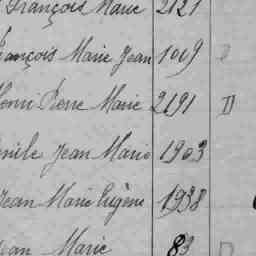 François Marie 2121
François Marie Jean 1019
Henri Pierre Marie 2191 D
Emile Jean Marie 1903
Jean Marie Eugène 1938
Jean Marie 83 D